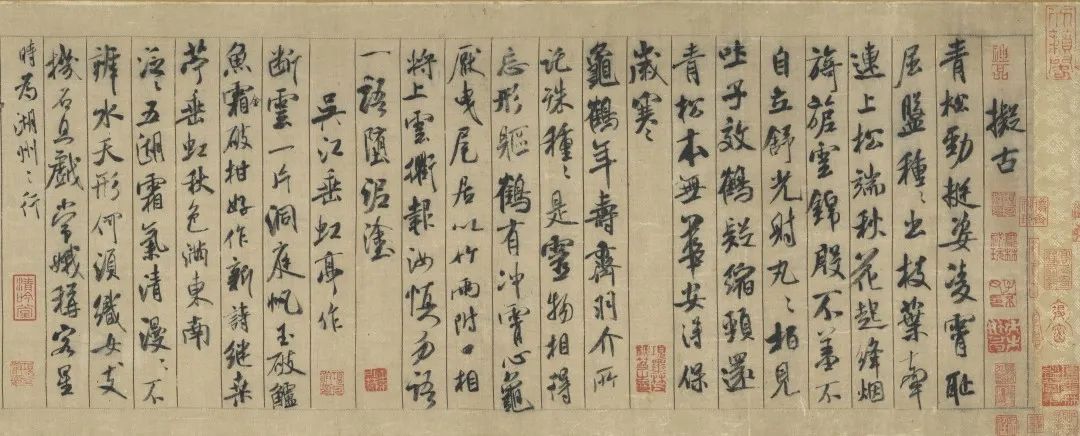 擬古
青松勁挺姿凌霄恥
屈盤種〻出枝葉牽
連上松端秋花起絳烟
旖旎雲錦殷不羞不
自立舒光射丸〻柏見
吐子效鶴疑縮頸還
青松本無華安得保
歲寒〻
龜鶴年壽齊羽介所
託殊種〻是靈物相得
忘形軀鶴有冲霄心龜
厭曳尾居以竹兩附口相
將上雲衢報汝慎勿語
一語墮泥塗
吳江垂虹亭作
斷雲一片洞庭帆玉破鱸
魚霜金破柑好作新詩繼桑
苧垂虹秋色滿東南
泛〻五湖霜氣清漫〻不
辨水天形何須織女支
機石且戲常娥稱客星
時為湖州〻行
清吟堂